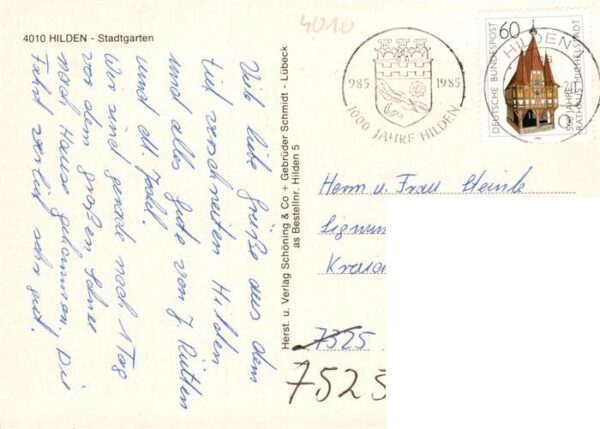 4010
4010 HILDEN - Stadtgarten
Viele liebe Grüße aus dem
tief verschneiten Hilden
und alles Gute von J. Rütten
und M.
Wir sind gerade noch 1 Tag
vor dem großen Schnee
nach Hause gekommen. Die
Fahrt verlief sehr gut.
Herst. u. Verlag Schöning & Co + Gebrüder Schmidt - Lübeck
as Bestellnr. Hilden 5
985 1985
1000 JAHRE HILDEN
HILDEN
DEUTSCHE BUNDESPOST
60
500 JAHRE
RATHAUS MICHELSTADT
Herrn u. Frau Steinle
7325
7525